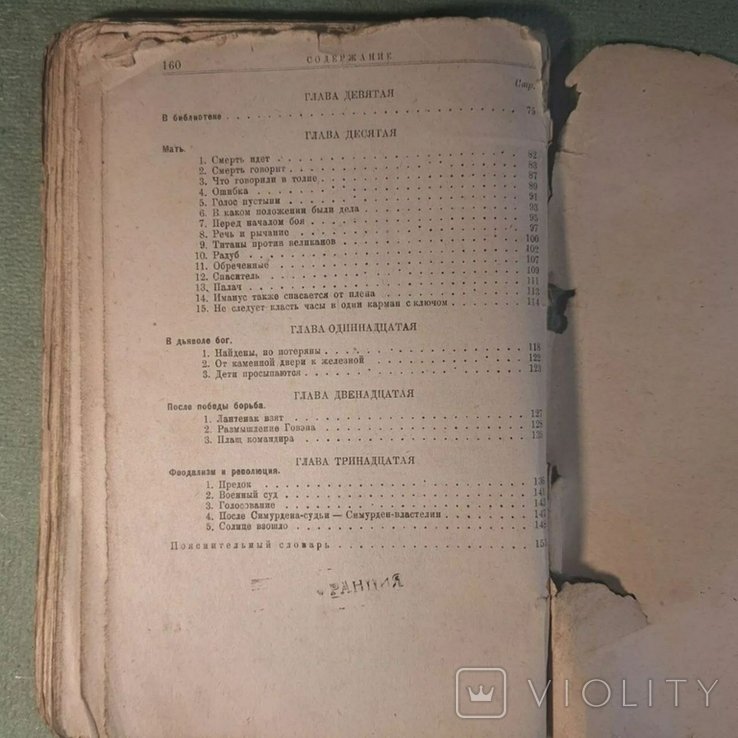 160 СОДЕРЖАНИЕ
Стр.
ГЛАВА ДЕВЯТАЯ
В библиотеке . . . 75
ГЛАВА ДЕСЯТАЯ
Мать.
1. Смерть идет . . . 82
2. Смерть говорит . . . 83
3. Что говорили в толпе . . . 87
4. Ошибка . . . 89
5. Голос пустыни . . . 91
6. В каком положении были дела . . . 93
7. Перед началом боя . . . 95
8. Речь и рычание . . . 97
9. Титаны против великанов . . . 100
10. Радуб . . . 102
11. Обреченные . . . 107
12. Спаситель . . . 109
13. Палач . . . 111
14. Иманус также спасается от плена . . . 113
15. Не следует класть часы в один карман с ключом . . . 114
ГЛАВА ОДИННАДЦАТАЯ
В дьяволе бог.
1. Найдены, но потеряны . . . 118
2. От каменной двери к железной . . . 122
3. Дети просыпаются . . . 123
ГЛАВА ДВЕНАДЦАТАЯ
После победы борьба.
1. Лантенак взят . . . 127
2. Размышление Говэна . . . 128
3. Плащ командира . . .
ГЛАВА ТРИНАДЦАТАЯ
Феодализм и революция.
1. Предок . . . 136
2. Военный суд . . . 141
3. Голосование . . . 143
4. После Симурдена-судьи — Симурден-властелин . . .
5. Солнце взошло . . .
Пояснительный словарь . . .
VIOLITY